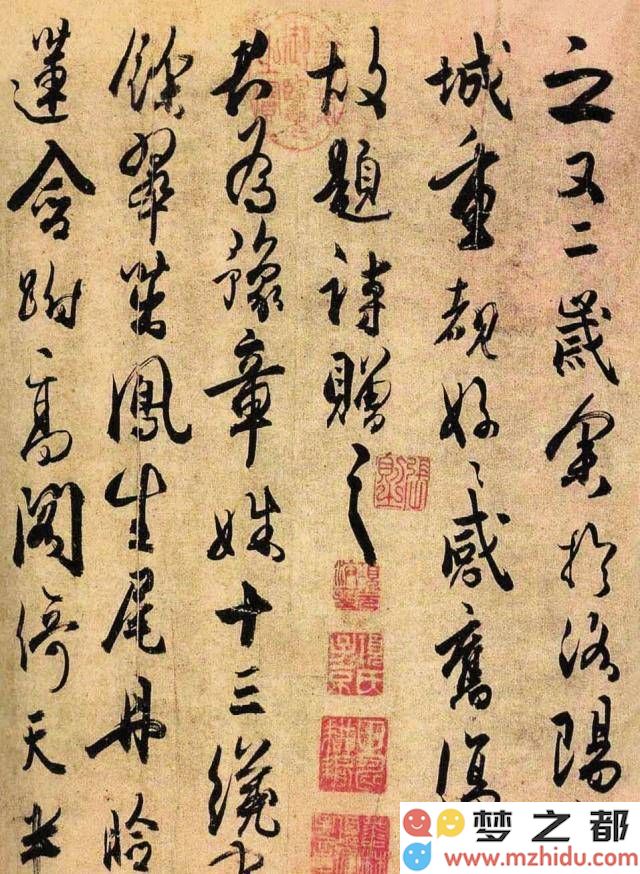 之又二歲余於洛陽
城重覩好〻感舊傷
故題詩贈之
君為豫章姝十三纔有
翠茁鳳生尾丹臉
蓮含跗高閣倚天半
項氏子京
梦之都
www.mzhidu.com